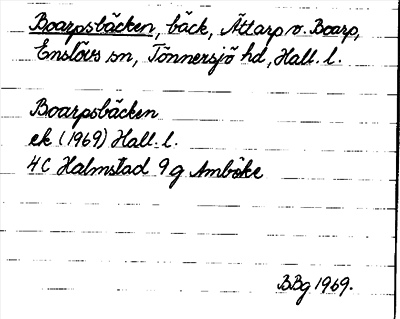 Boarpsbäcken, bäck, Ättarp v. Boarp,
Enslövs sn, Tönnersjö hd, Hall. l.
Boarpsbäcken
ek (1969) Hall. l.
4C Halmstad 9g Amböke
BBg 1969.